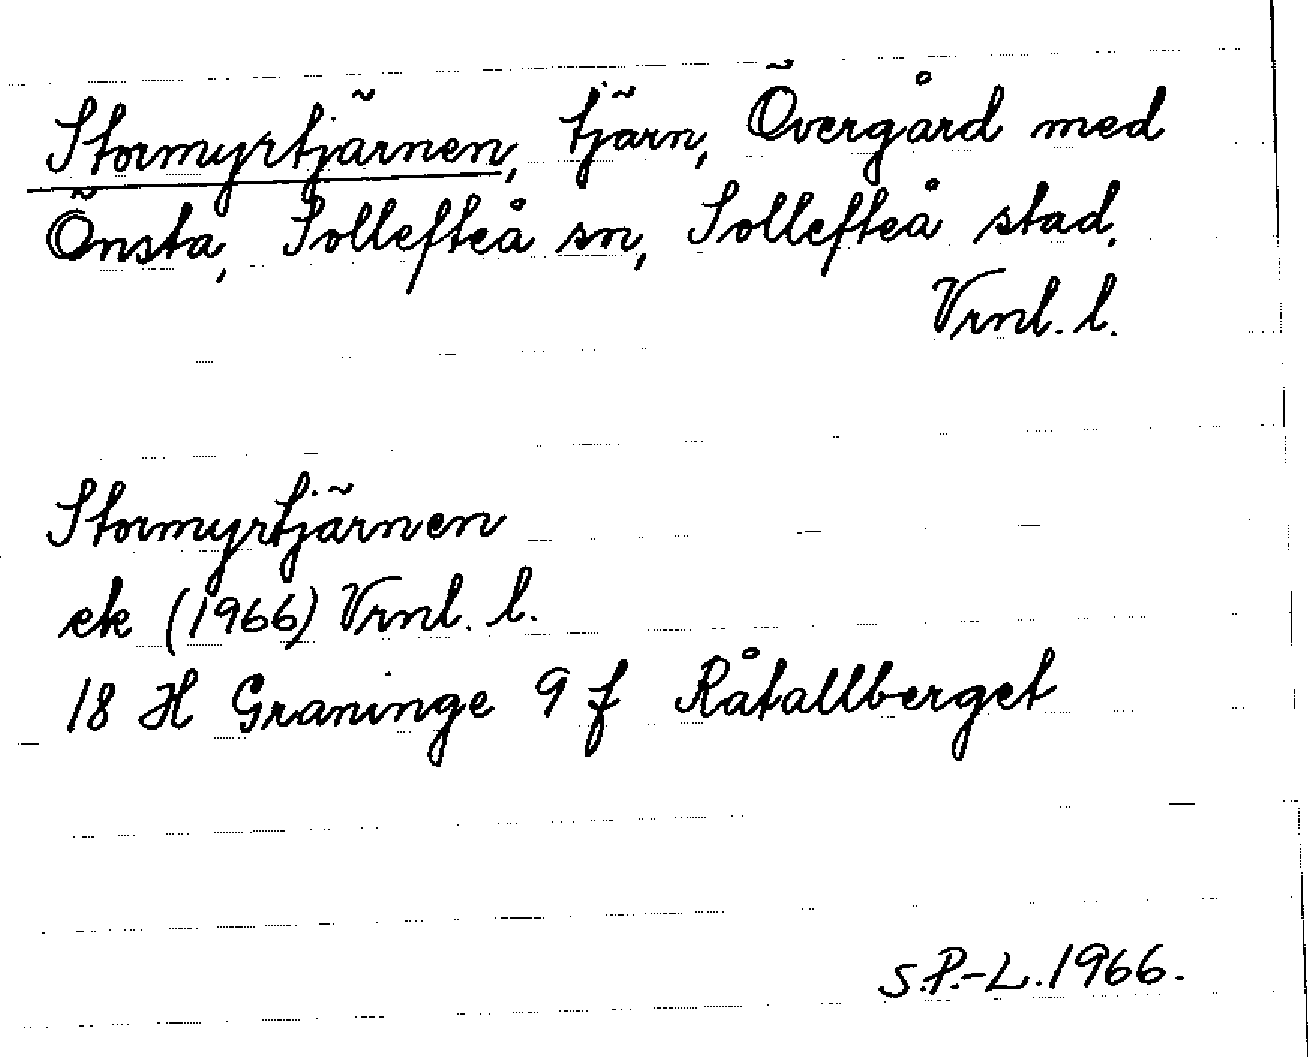 Stormyrtjärnen, tjärn, Övergård med
Önsta, Sollefteå sn, Sollefteå stad.
Vrnl. l.
Stormyrtjärnen
ek (1966) Vrnl. l.
18 H Graninge 9 f Råtallberget
S.P.-L. 1966.